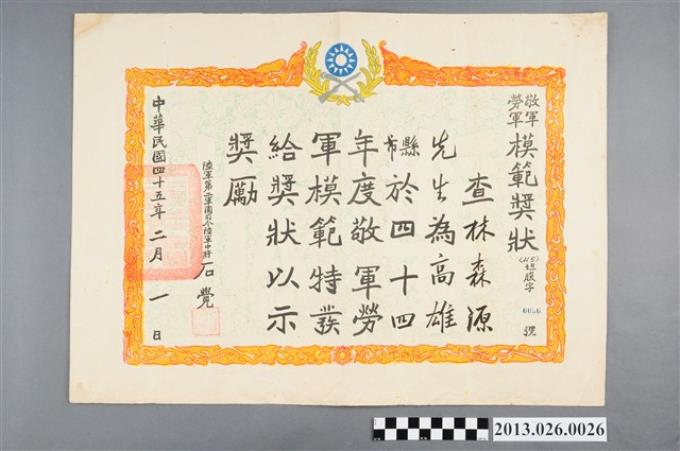 敬軍
勞軍
模範獎狀
(45)坦服字
號
查林森源
先生為高雄
縣
市
於四十四
年度敬軍勞
軍模範特發
給獎狀以示
獎勵
陸軍第二軍團司令陸軍中將 石覺
中華民國四十五年二月一日
2013.026.0026